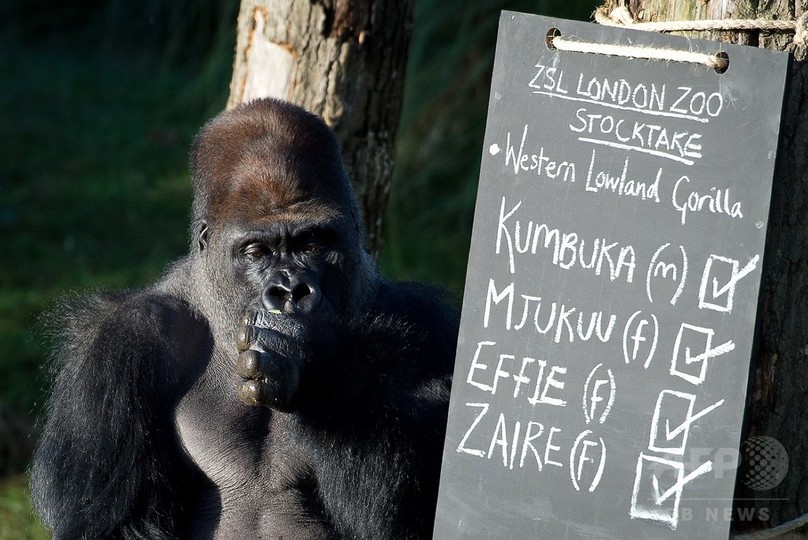 ZSL LONDON ZOO
STOCKTAKE
• Western Lowland Gorilla
KUMBUKA (m)
MJUKUU (f)
EFFIE (f)
ZAIRE (F)
AFP
BB NEWS